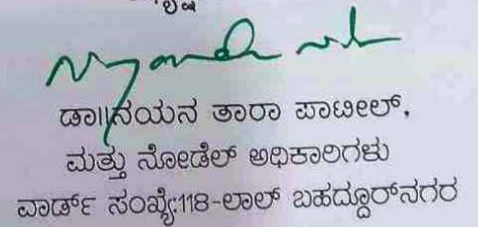 ಡಾ||ನಯನ ತಾರಾ ಪಾಟೀಲ್,
ಮತ್ತು ನೋಡೆಲ್ ಅಧಿಕಾರಿಗಳು
ವಾರ್ಡ್ ಸಂಖ್ಯೆ:118-ಲಾಲ್ ಬಹದ್ದೂರ್‌ನಗರ